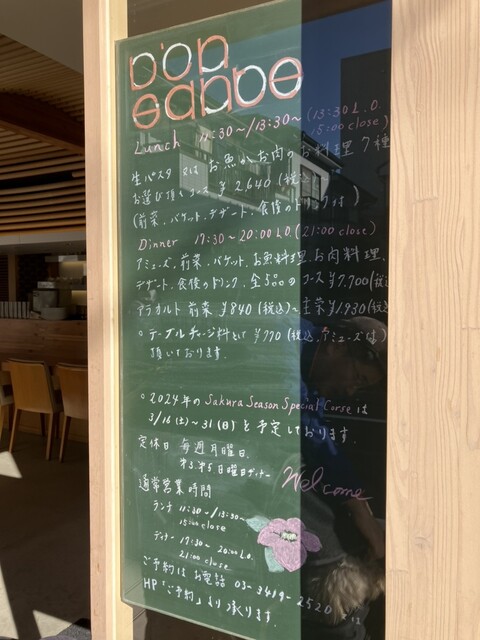 Lunch 11:30〜/13:30〜 (13:30 L.O. 15:00 close)
生パスタ 又は お魚かお肉のお料理 7種
お選び頂くコース ¥2,640 (税込)〜
(前菜、バケット、デザート、食後のドリンク付)
Dinner 17:30〜20:00 L.O. (21:00 close)
アミューズ、前菜、バケット、お魚料理、お肉料理、
デザート、食後のドリンク、全5品のコース ¥7,700(税
アラカルト 前菜 ¥840 (税込)〜 主菜 ¥1,930(税込
○テーブルチャージ料として ¥770 (税込、アミューズ付)
頂いております。
○2024年の Sakura Season Special Corse は
3/16 (土)〜31(日)と予定しております。
定休日 毎週月曜日、
第3、第5日曜日ディナー
Welcome
通常営業時間
ランチ 11:30〜/13:30〜
15:00 close
ディナー 17:30〜 20:00 L.O.
21:00 close
ご予約は お電話 03-3419-2520
HP「ご予約」より承ります。